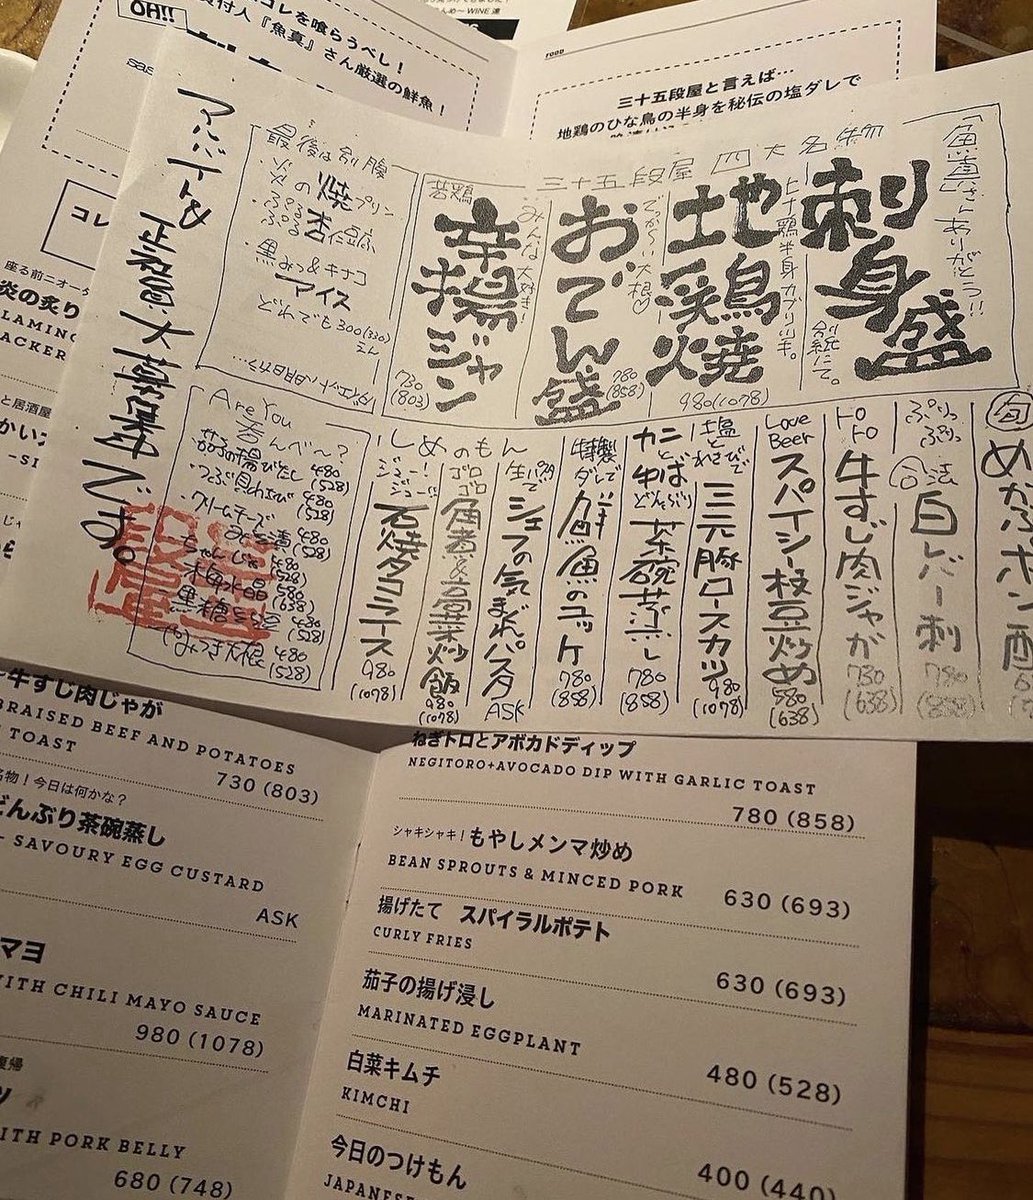 OH!!
コレを喰らうべし！
買付人『魚真』さん厳選の鮮魚！
WINE
FOOD
三十五段屋と言えば…
地鶏のひな鳥の半身を秘伝の塩ダレで
コレ
座る前ニオーダ
炎の炙り
アルバイト&
正社員大募集中です。
最後は別腹
・炎の焼プリン
・ぷるぷる杏仁豆腐
・黒みつ&キナコ
アイス
どれでも300(330)
えん
三十五段屋 四大名物
「魚真」さんありがとう!!
刺身盛
台紙にて。
ヒナ鶏半身カブリツキ。
地鶏焼
980(1078)
でっか～い大根♡
おでん盛
780
(858)
みんな大好き!
若鶏
辛揚ジャン
730
(803)
旬
めかぶポン酢
ぷりっ
ぷりっ
合法
白レバー刺
780
(858)
トロ
トロ
牛すじ肉ジャが
Love
Beer
スパイシー枝豆炒め
580
(638)
塩と
わさびで
三元豚ロースカツ
980
(1078)
カニと
ゆば
どんぶり
茶碗蒸し
780
(858)
特製
ダレで
鮮魚のユッケ
780
(858)
しめのもん
生パスタで
シェフの気まぐれパスタ
ASK
ゴロ
ゴロ
角煮&高菜炒飯
980
(1078)
ジュー!
ジュー!!
石焼タコライス
980
(1078)
Are You
呑んべ～?
・茄子の揚びたし 480
(528)
・つぶ貝わさび 480
(528)
・クリームチーズ
みそ漬 480
(528)
・ちゃんじゃ 480
(528)
580
(638)
480
(528)
・はみつき大根 480
(528)
牛すじ肉じゃが
BRAISED BEEF AND POTATOES
TOAST
730 (803)
名物！今日は何かな？
どんぶり茶碗蒸し
- SAVOURY EGG CUSTARD
ASK
マヨ
WITH CHILI MAYO SAUCE
980 (1078)
復帰
WITH PORK BELLY
680 (748)
ねぎトロとアボカドディップ
NEGITORO+AVOCADO DIP WITH GARLIC TOAST
780 (858)
シャキシャキ！もやしメンマ炒め
BEAN SPROUTS & MINCED PORK
630 (693)
揚げたて　スパイラルポテト
CURLY FRIES
630 (693)
茄子の揚げ浸し
MARINATED EGGPLANT
480 (528)
白菜キムチ
KIMCHI
400 (440)
今日のつけもん
JAPANESE